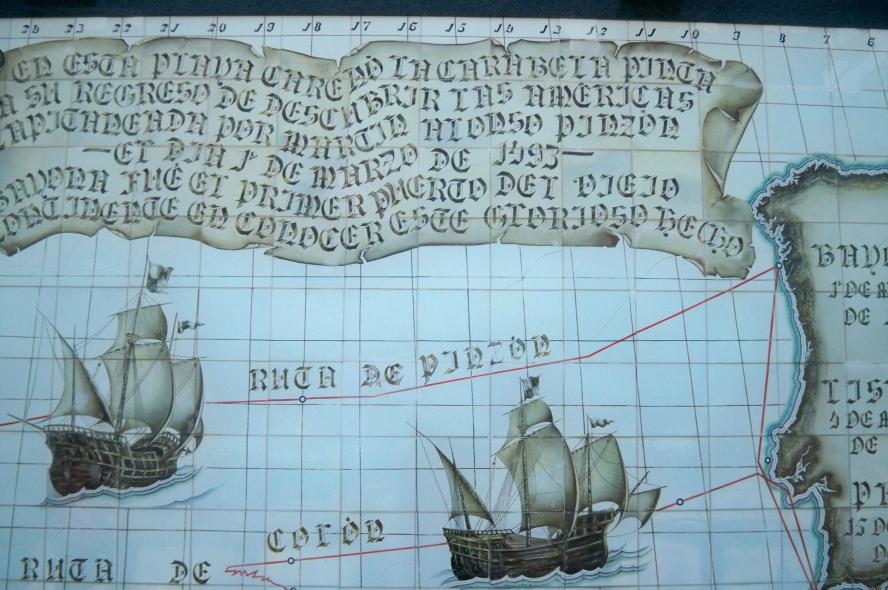 24 23 22 21 20 19 18 17 16 15 14 13 12 11 10 9 8 7 6
EN ESTA PLAYA CAREnO LA CARABELA PINTA
A SU REGRESO DE DESCUBRIR LAS AMERICAS
CAPITANEADA POR MARTIN ALONSO PINZON
—EL DIA 1º DE MARZO DE 1493—
BAYONA FUÉ EL PRIMER PUERTO DEL VIEJO
CONTINENTE EN CONOCER ESTE GLORIOSO HECHO
BAYO
1 DE M
DE
RUTA DE PINZÓN
LIS
4 DE M
DE
P
15 D
D
COLÓN
RUTA DE